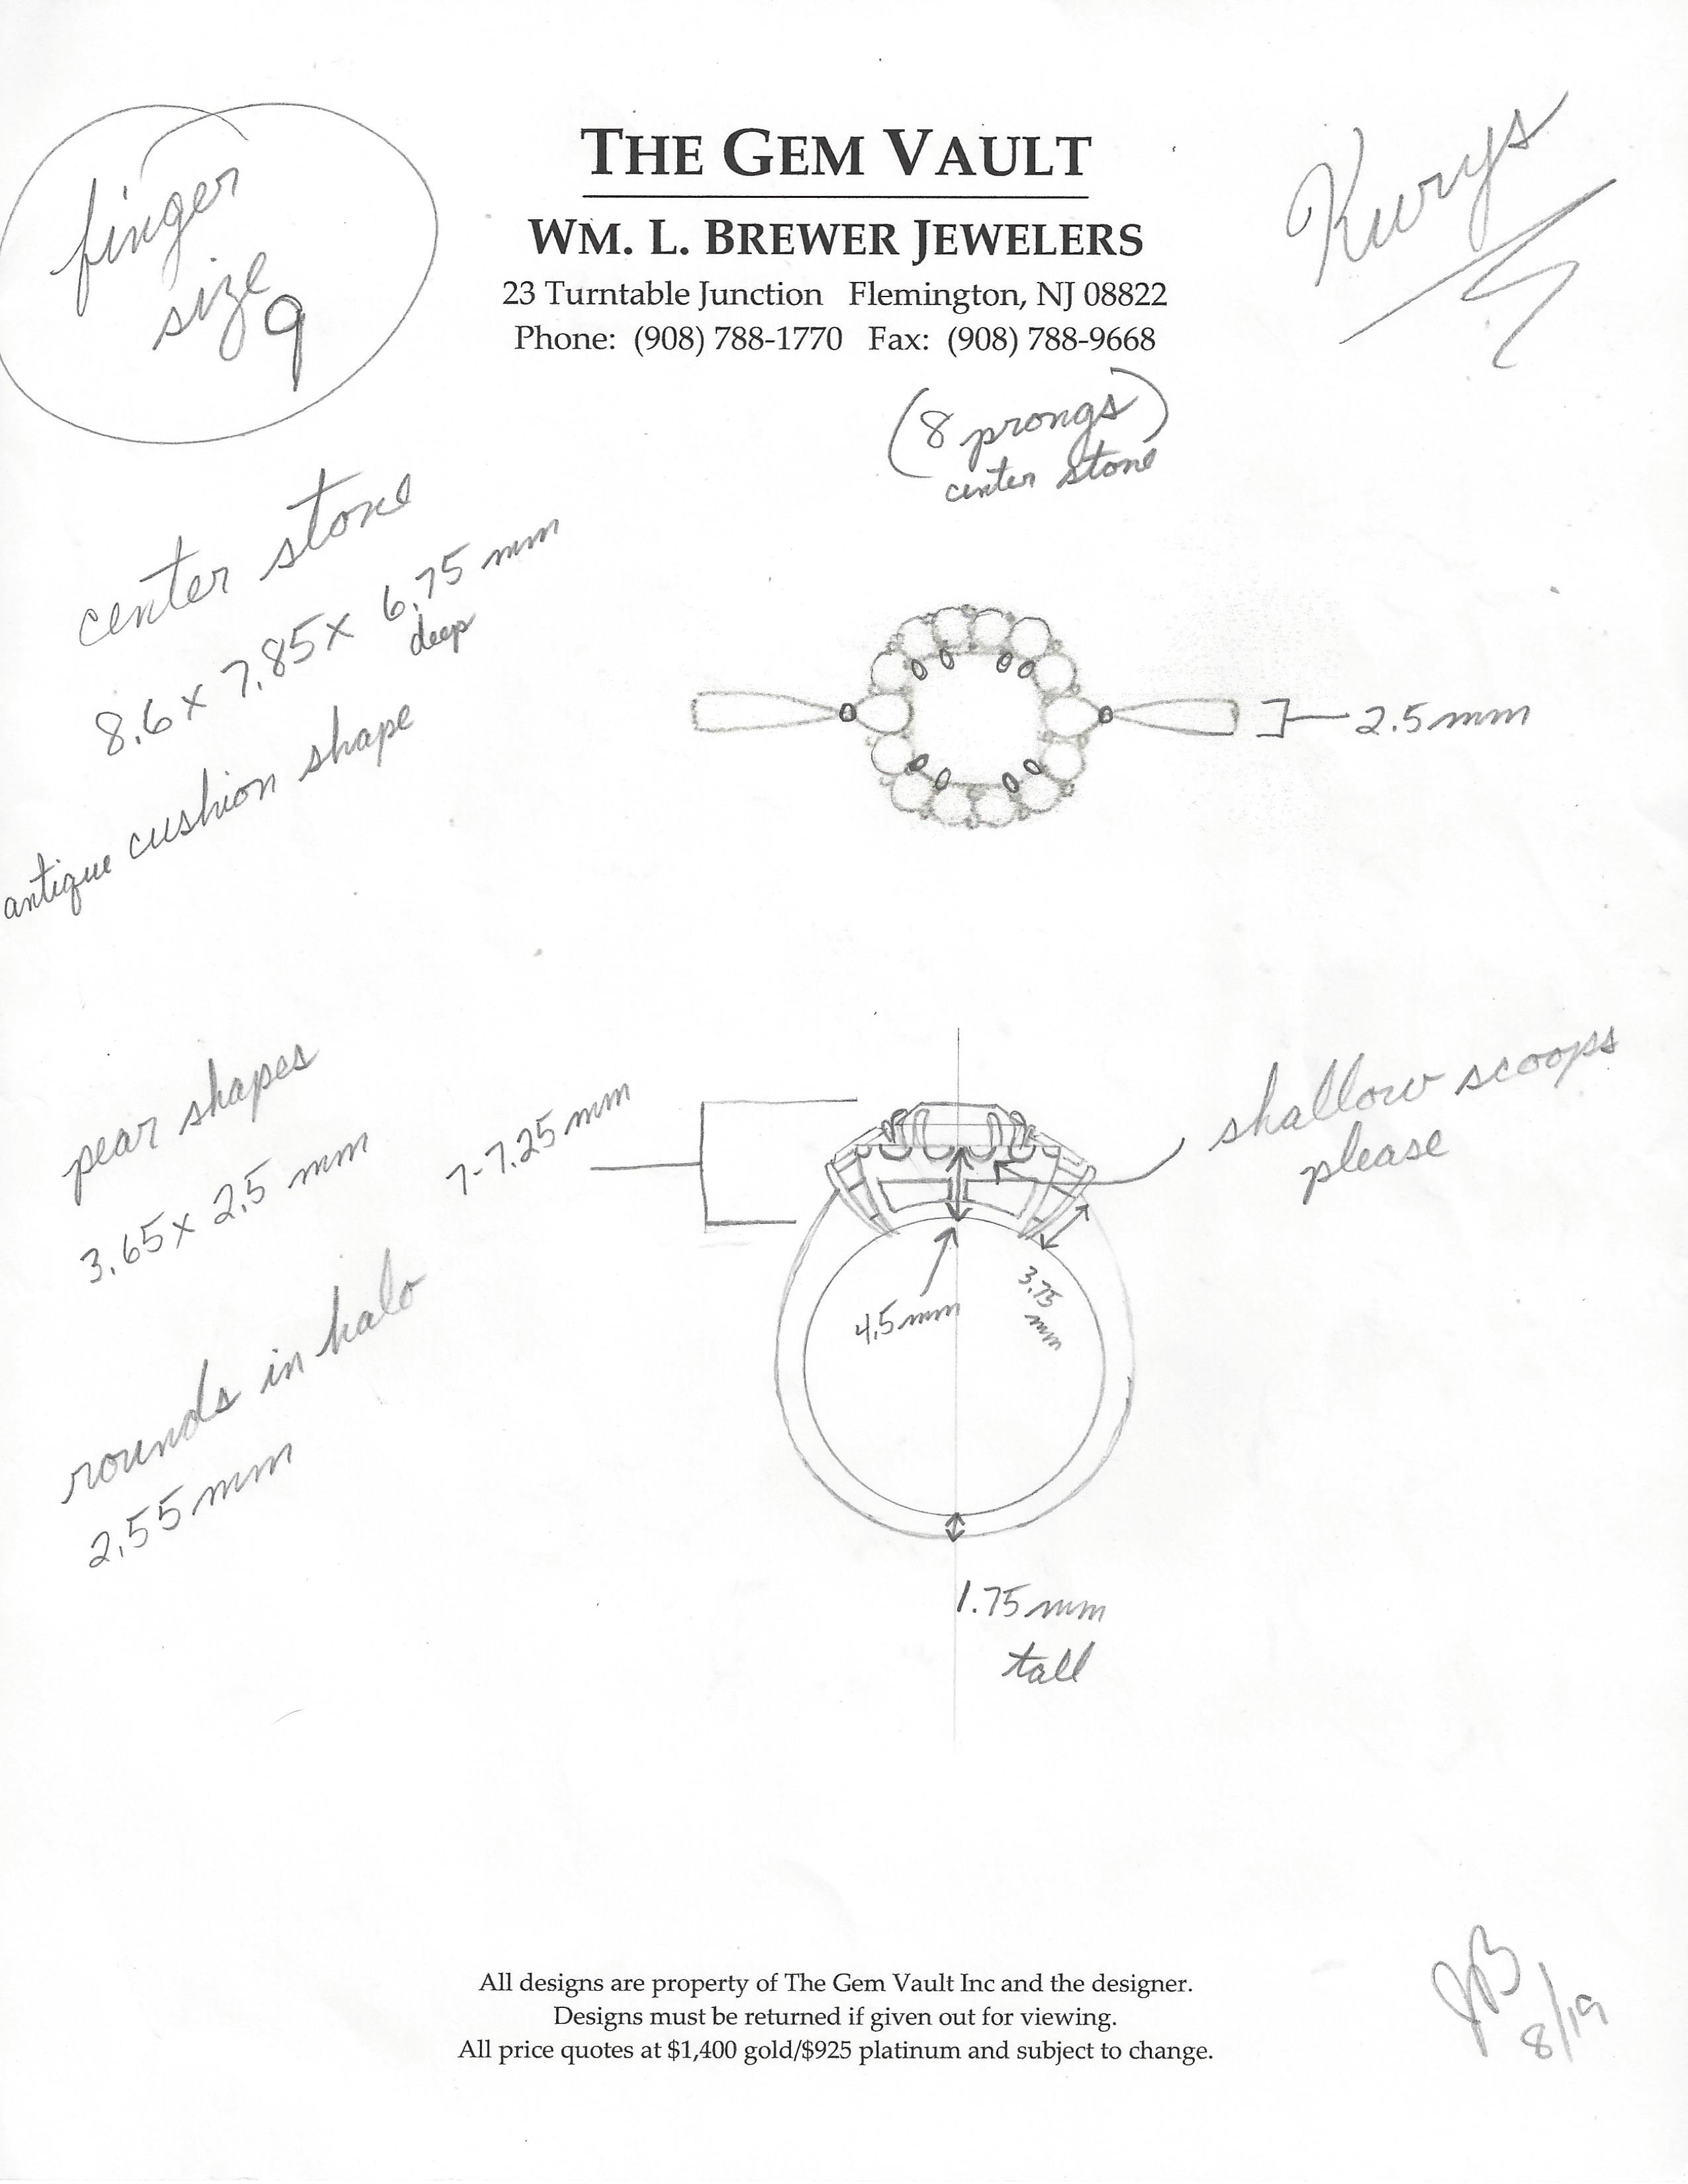 THE GEM VAULT
WM. L. BREWER JEWELERS
23 Turntable Junction Flemington, NJ 08822
Phone: (908) 788-1770 Fax: (908) 788-9668
finger
size
9
Kurys
(8 prongs)
center stone
center stone
8.6 x 7.85 x 6.75 mm
deep
antique cushion shape
2.5mm
pear shapes
3.65 x 2.5 mm
7-7.25 mm
shallow scoops
please
4.5mm
3.75
mm
rounds in halo
2.55mm
1.75mm
tall
All designs are property of The Gem Vault Inc and the designer.
Designs must be returned if given out for viewing.
All price quotes at $1,400 gold/$925 platinum and subject to change.
JB
8/19